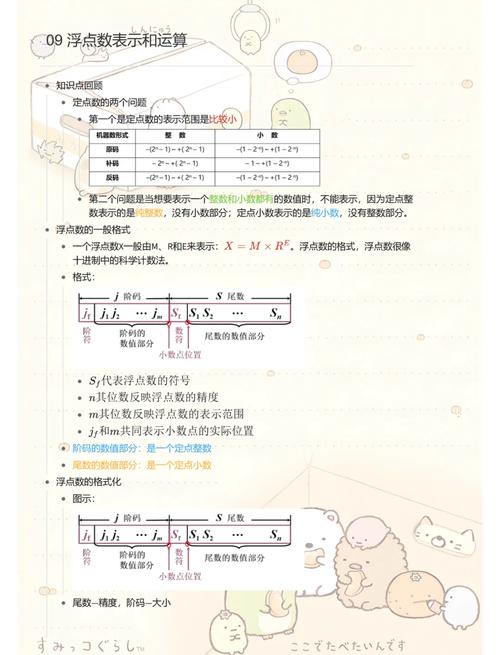 しんにゅう
09 浮点数表示和运算
知识点回顾
定点数的两个问题
第一个是定点数的表示范围是比较小
机器数形式 整 数 小 数
原码 −(2ⁿ − 1) ~ +( 2ⁿ − 1) −(1 − 2⁻ⁿ) ~ +(1 − 2⁻ⁿ)
补码 − 2ⁿ ~ +( 2ⁿ − 1) − 1 ~ +(1 − 2⁻ⁿ)
反码 −(2ⁿ − 1) ~ +( 2ⁿ − 1) −(1 − 2⁻ⁿ) ~ +(1 − 2⁻ⁿ)
第二个问题是当想要表示一个整数和小数都有的数值时，不能表示，因为定点整
数表示的是纯整数，没有小数部分；定点小数表示的是纯小数，没有整数部分。
浮点数的一般格式
一个浮点数X一般由M、R和E来表示：X = M × Rᴱ。浮点数的格式，浮点数很像
十进制中的科学计数法。
格式：
j 阶码 S 尾数
jf j1 j2 ⋯ jm Sf S1 S2 ⋯ Sn
阶符 阶码的数值部分 数符 尾数的数值部分
小数点位置
Sf代表浮点数的符号
n其位数反映浮点数的精度
m其位数反映浮点数的表示范围
jf和m共同表示小数点的实际位置
阶码的数值部分：是一个定点整数
尾数的数值部分：是一个定点小数
浮点数的格式化
图示：
j 阶码 S 尾数
jf j1 j2 ⋯ jm Sf S1 S2 ⋯ Sn
阶符 阶码的数值部分 数符 尾数的数值部分
小数点位置
尾数—精度，阶码—大小
すみっコぐらしTM ここでたべたいんです